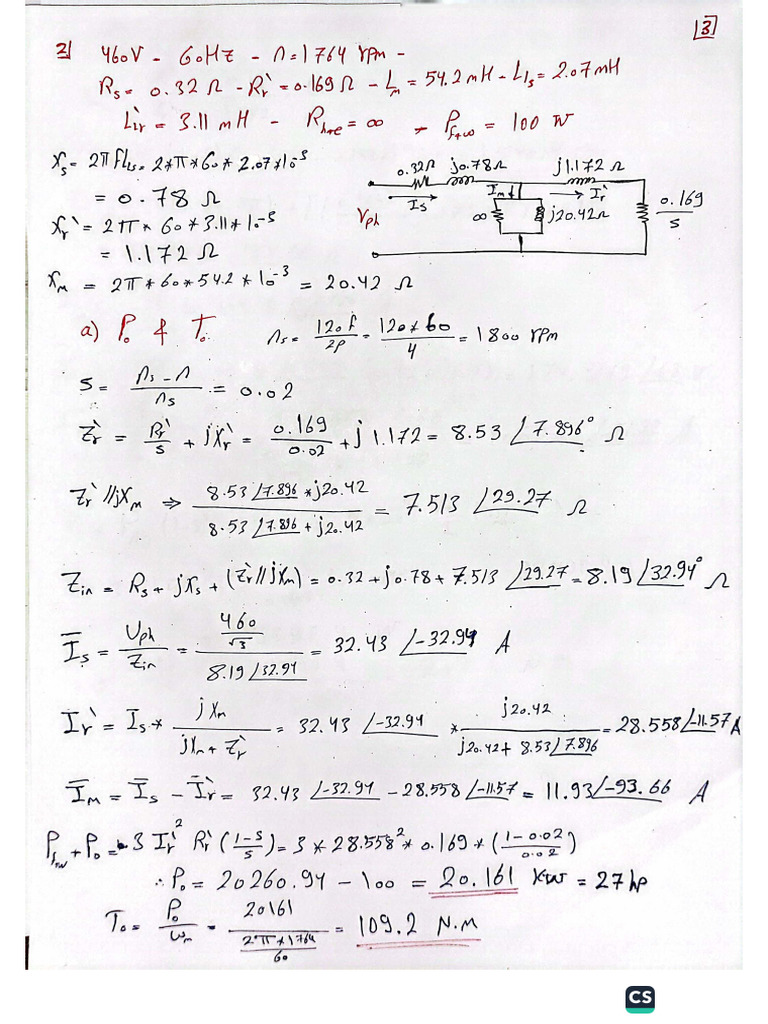 3
2| 460V - 60HZ - n=1764 rpm -
Rs = 0.32 Ω - Rr` = 0.169 Ω - Lm = 54.2 mH - Lls = 2.07 mH
Llr` = 3.11 mH - Rh+e = ∞ - Pf+w = 100 W
Xs = 2πfLls = 2*π*60*2.07*10^-3
= 0.78 Ω
Xr` = 2π*60*3.11*10^-3
= 1.172 Ω
Xm = 2π*60*54.2*10^-3 = 20.42 Ω
0.32Ω j0.78Ω j1.172 Ω
Is Im Ir`
Vph ∞ j20.42Ω 0.169/s
a) Po & To ns = 120f/2p = 120*60/4 = 1800 rpm
S = (ns - n)/ns = 0.02
Zr` = Rr`/s + jXr` = 0.169/0.02 + j 1.172 = 8.53 ∠7.896° Ω
Zr`//jXm ⇒ (8.53∠7.896 * j20.42)/(8.53∠7.896 + j20.42) = 7.513 ∠29.27 Ω
Zin = Rs + jXs + (Zr`//jXm) = 0.32 + j0.78 + 7.513 ∠29.27 = 8.19 ∠32.94° Ω
Is = Uph/Zin = (460/√3)/(8.19∠32.94) = 32.43 ∠-32.94 A
Ir` = Is * jXm/(jXm + Zr`) = 32.43 ∠-32.94 * j20.42/(j20.42 + 8.53∠7.896) = 28.558∠-11.57 A
Im = Is - Ir` = 32.43 ∠-32.94 - 28.558 ∠-11.57 = 11.93∠-93.66 A
Pf+w + Po = 3 Ir`² Rr` ((1-s)/s) = 3 * 28.558² * 0.169 * ((1-0.02)/0.02)
∴ Po = 20260.94 - 100 = 20.161 KW = 27 hp
To = Po/ωm = 20161/(2π*1764/60) = 109.2 N.M
CS